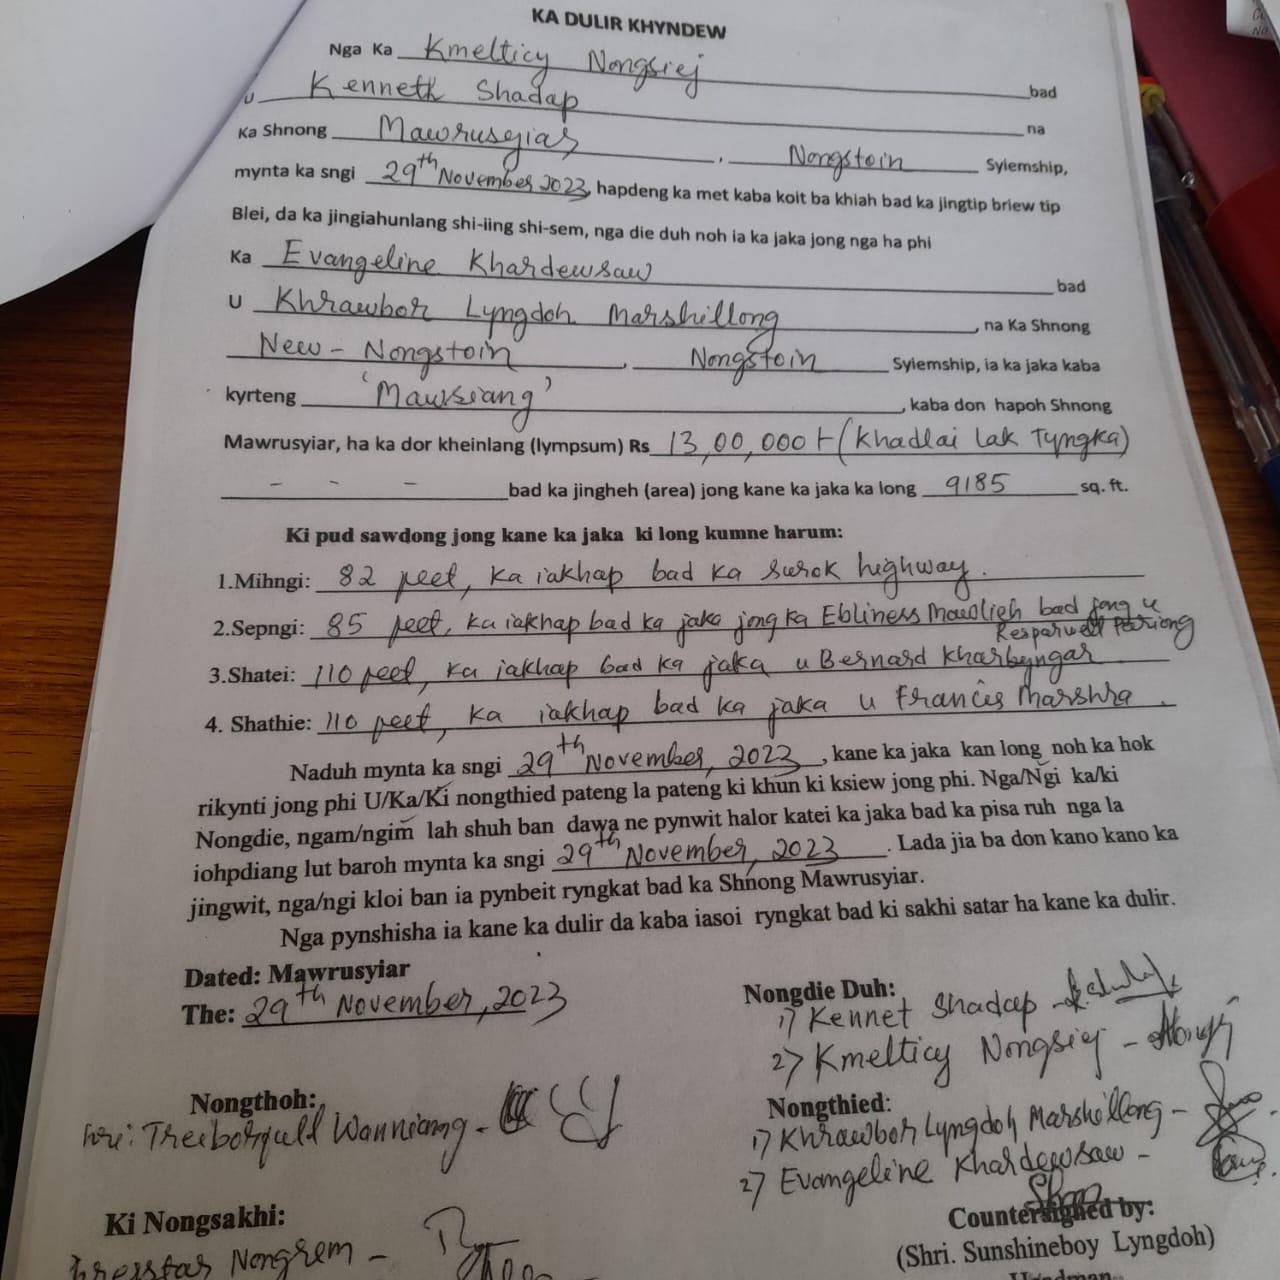 KA DULIR KHYNDEW
Nga Ka Kmelticy Nongsiej bad
U Kenneth Shadap na
Ka Shnong Mawrusyiar, Nongstoin Syiemship,
mynta ka sngi 29th November 2023, hapdeng ka met kaba koit ba khiah bad ka jingtip briew tip
Blei, da ka jingiahunlang shi-iing shi-sem, nga die duh noh ia ka jaka jong nga ha phi
Ka Evangeline Khardewsaw bad
U Khrawbor Lyngdoh Marshillong, na Ka Shnong
New-Nongstoin, Nongstoin Syiemship, ia ka jaka kaba
kyrteng 'Mawsiang', kaba don hapoh Shnong
Mawrusyiar, ha ka dor kheinlang (lympsum) Rs 13,00,000/- (Khadlai lak Tyngka)
- - - bad ka jingheh (area) jong kane ka jaka ka long 9185 sq. ft.
Ki pud sawdong jong kane ka jaka ki long kumne harum:
1.Mihngi: 82 peet, ka iakhap bad ka surok highway.
2.Sepngi: 85 peet, ka iakhap bad ka jaka jong ka Ebliness Mawlieh bad jong u
Pariong
3.Shatei: 110 peet, ka iakhap bad ka jaka u Bernard Kharbyngar
4. Shathie: 110 peet, ka iakhap bad ka jaka u Francis Marshra.
Naduh mynta ka sngi 29th November, 2023, kane ka jaka kan long noh ka hok
rikynti jong phi U/Ka/Ki nongthied pateng la pateng ki khun ki ksiew jong phi. Nga/Ngi ka/ki
Nongdie, ngam/ngim lah shuh ban dawa ne pynwit halor katei ka jaka bad ka pisa ruh nga la
iohpdiang lut baroh mynta ka sngi 29th November, 2023. Lada jia ba don kano kano ka
jingwit, nga/ngi kloi ban ia pynbeit ryngkat bad ka Shnong Mawrusyiar.
Nga pynshisha ia kane ka dulir da kaba iasoi ryngkat bad ki sakhi satar ha kane ka dulir.
Dated: Mawrusyiar
The: 29th November, 2023
Nongdie Duh:
1) Kennet Shadap -
2) Kmelticy Nongsiej -
Nongthoh:
Wanniang -
Nongthied:
1) Khrawbor Lyngdoh Marshillong -
2) Evangeline Khardewsaw -
Ki Nongsakhi:
Nongrem -
Countersigned by:
(Shri. Sunshineboy Lyngdoh)